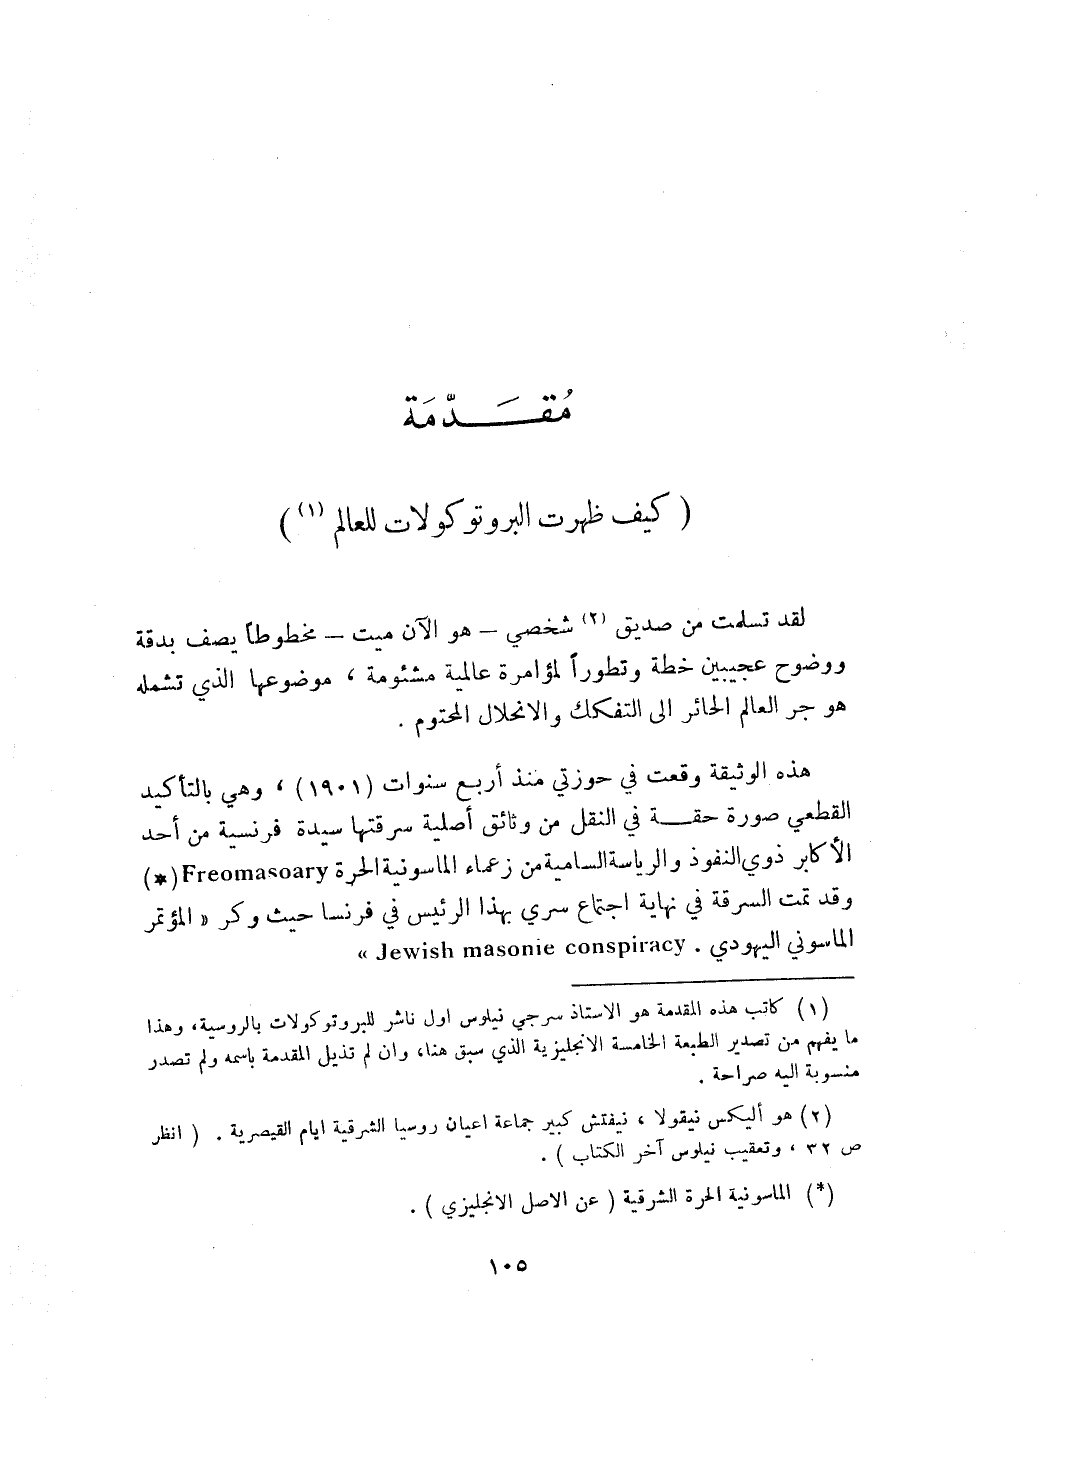 مُقَــدّمَة
( كيف ظهرت البروتوكولات للعالم (١) )
لقد تسلمت من صديق (٢) شخصي – هو الآن ميت – مخطوطاً يصف بدقة
ووضوح عجيبين خطة وتطوراً لمؤامرة عالمية مشئومة ، موضوعها الذي تشمله
هو جر العالم الحائر الى التفكك والانحلال المحتوم .
هذه الوثيقة وقعت في حوزتي منذ أربع سنوات (١٩٠١) ، وهي بالتأكيد
القطعي صورة حقــة في النقل من وثائق أصلية سرقتها سيدة فرنسية من أحد
الأكابر ذوي النفوذ والرياسة السامية من زعماء الماسونية الحرة Freomasoary (*)
وقد تمت السرقة في نهاية اجتماع سري بهذا الرئيس في فرنسا حيث وكر « المؤتمر
الماسوني اليهودي . Jewish masonie conspiracy »
(١) كاتب هذه المقدمة هو الاستاذ سرجي نيلوس اول ناشر للبروتوكولات بالروسية، وهذا
ما يفهم من تصدير الطبعة الخامسة الانجليزية الذي سبق هنا، وان لم تذيل المقدمة باسمه ولم تصدر
منسوبة اليه صراحة .
(٢) هو أليكس نيقولا ، نيفتش كبير جماعة اعيان روسيا الشرقية ايام القيصرية . ( انظر
ص ٣٢ ، وتعقيب نيلوس آخر الكتاب ) .
(*) الماسونية الحرة الشرقية ( عن الاصل الانجليزي ) .
١٠٥